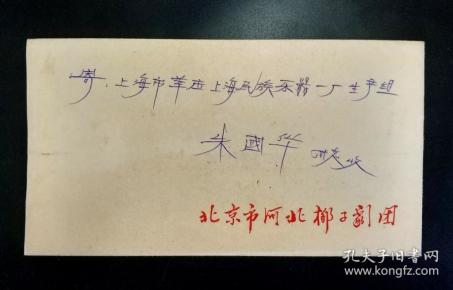 寄：上海市莘庄上海民族乐器一厂生产组
朱國华 收
北京市河北梆子劇团
孔夫子旧书网
www.kongfz.com